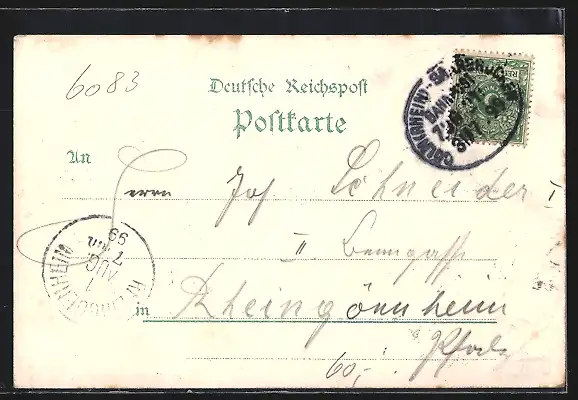 6083
Deutsche Reichspost
Postkarte
An
Herrn Jos Schneider I
II
in Rheingönnheim
Pfalz
60,-
1
AUG
7
99
BAHNPOST